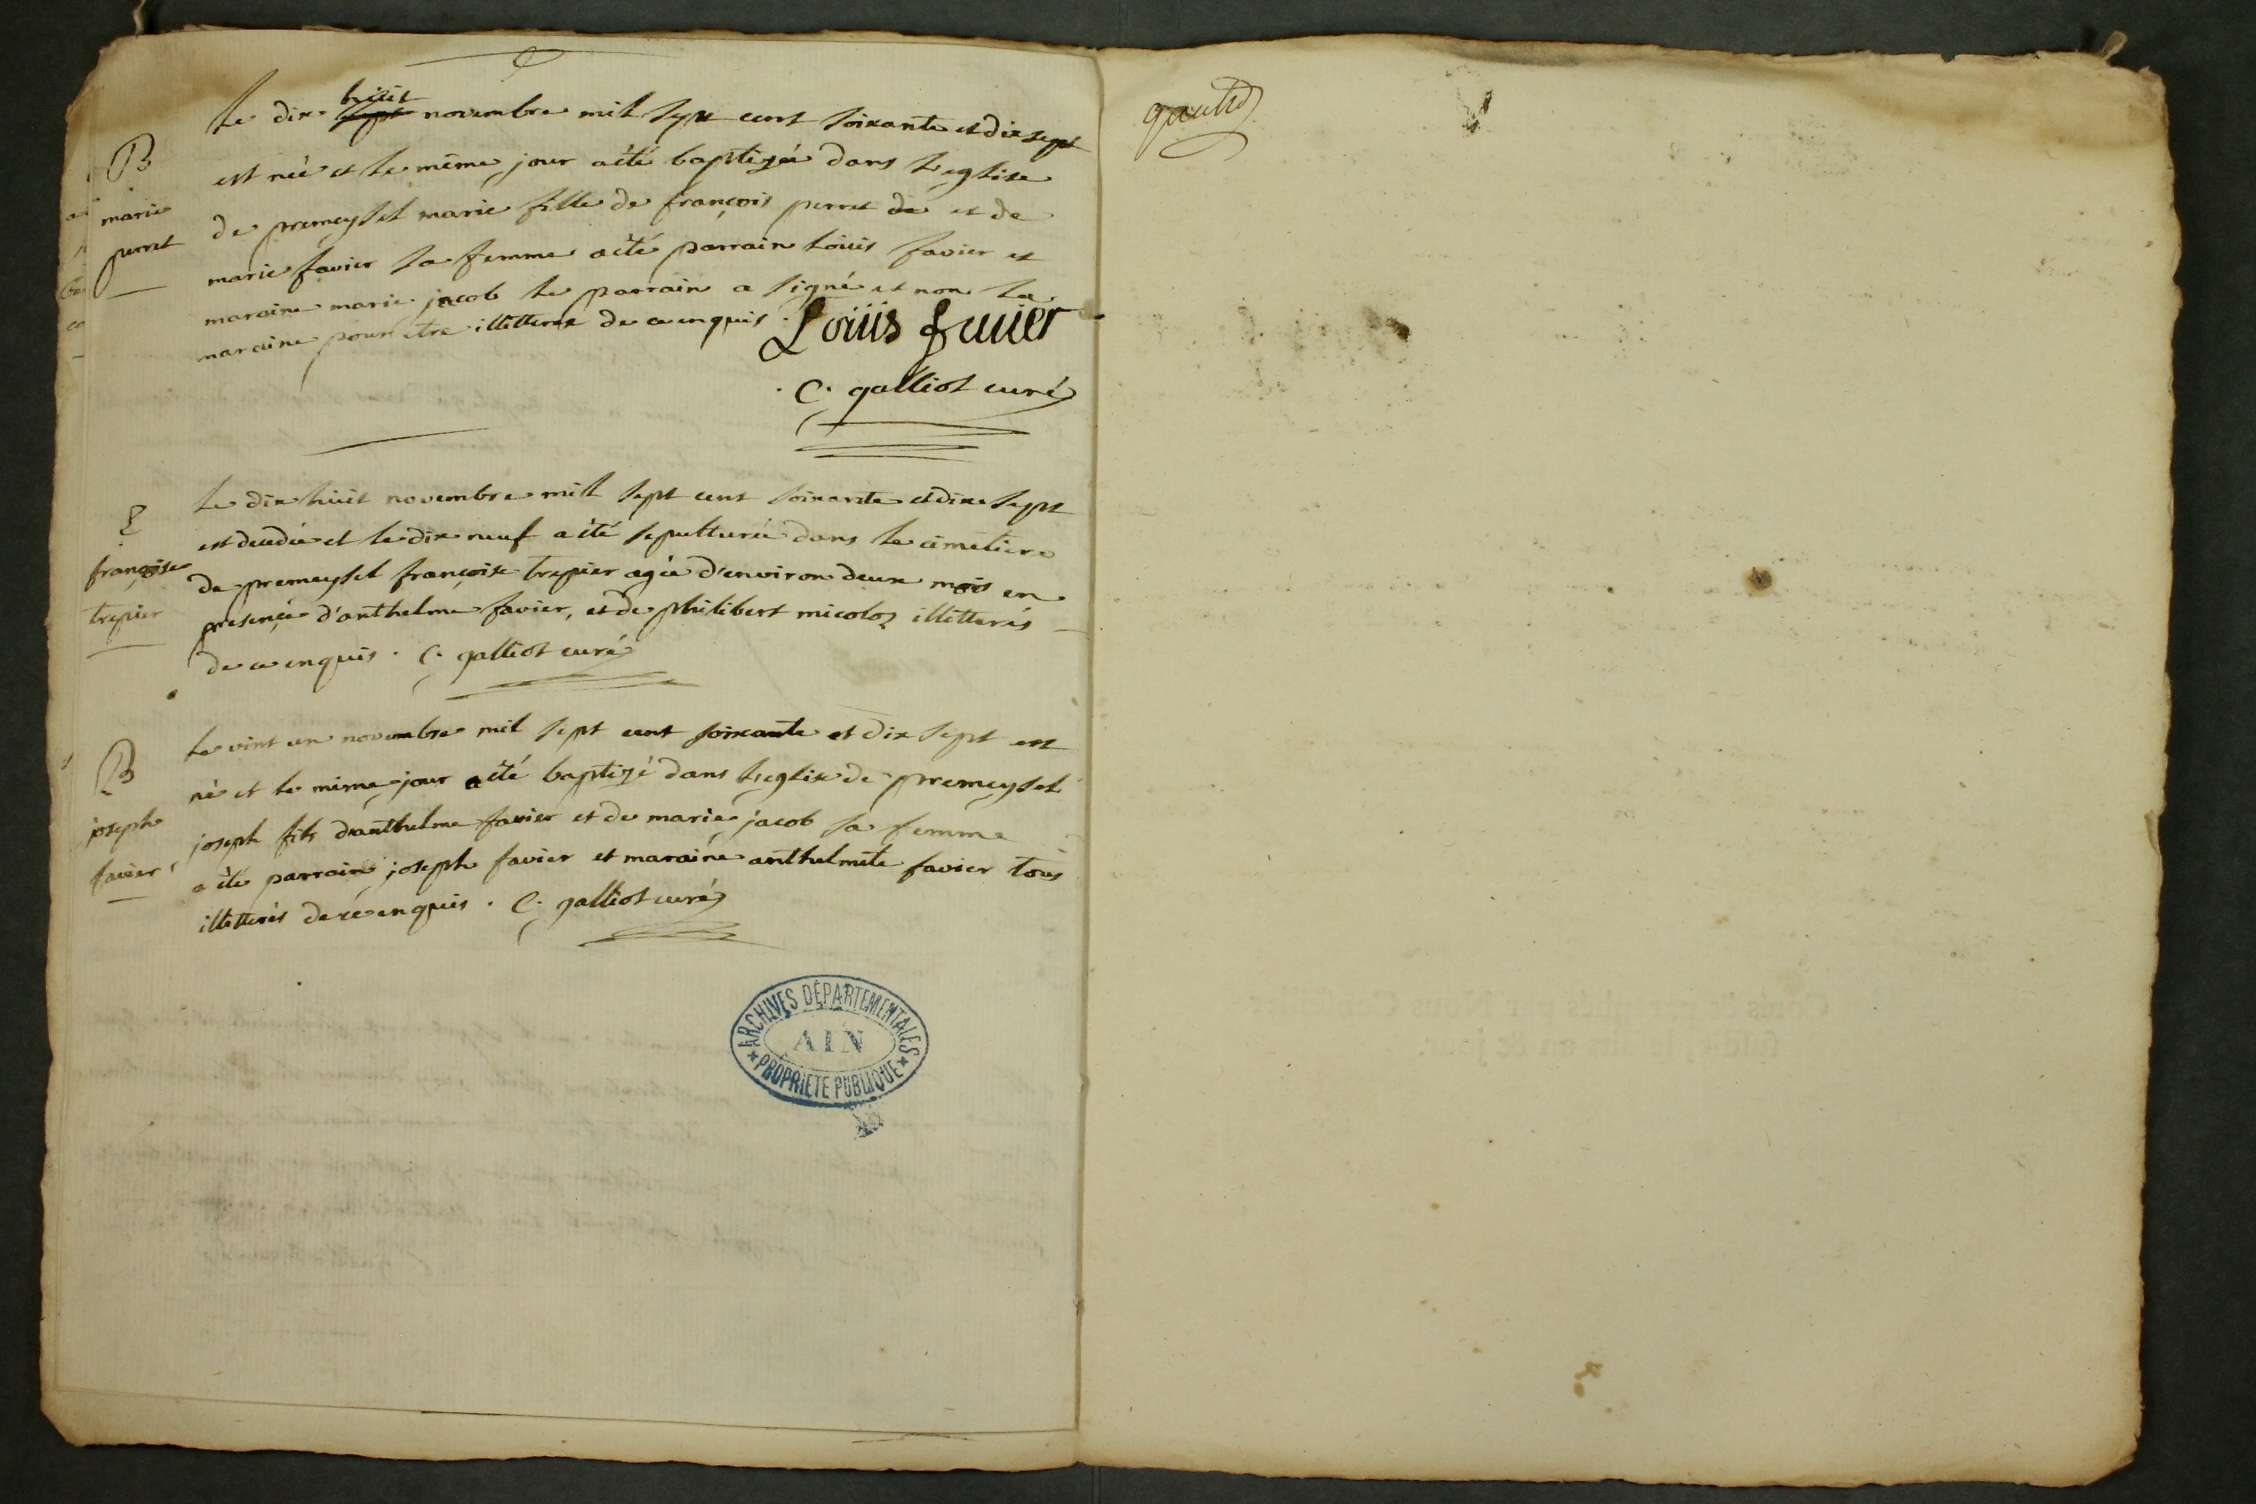 B
marie
perret
Le dix huit novembre mil sept cent soixante et dix sept
est née et le même jour a été baptizée dans l'eglise
de premeysel marie fille de françois perret de et de
marie favier sa femme a été parrain loüis favier et
maraine marie jacob le parrain a signé et non la
maraine pour etre illetteree de ce enquis.
Loüis favier
C. galliot curé
françoise
trepier
Le dix huit novembre mil sept cent soixante et dix sept
est decedée et le dix neuf a été sepulturée dans le cimetiere
de premeysel françoise trepier agée d'environ deux mois en
presence d'anthelme favier, et de philibert micoloz illetterés
de ce enquis. C. galliot curé
B
joseph
favier
Le vint un novembre mil sept cent soixante et dix sept est
né et le même jour a été baptizé dans l'eglise de premeysel
joseph fils d'anthelme favier et de marie jacob sa femme
a été parrain joseph favier et maraine anthelmete favier tous
illetterés de ce enquis. C. galliot curé
ARCHIVES DÉPARTEMENTALES
AIN
PROPRIETE PUBLIQUE